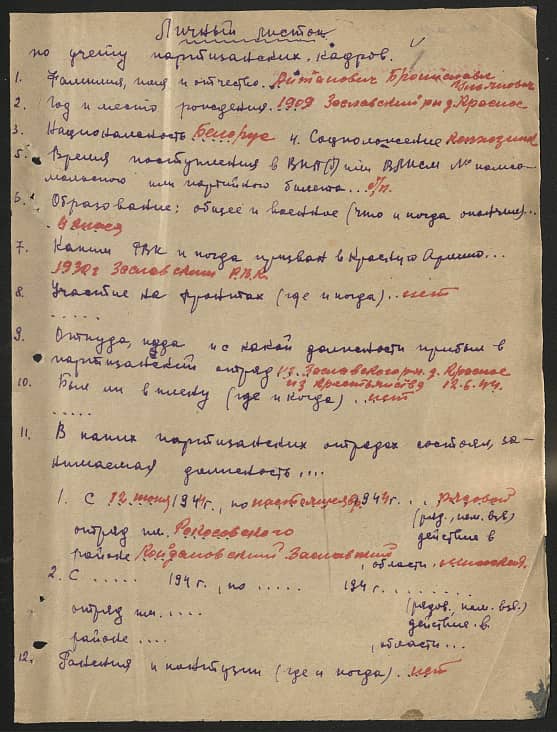 Личный листок
по учету партизанских кадров.
1. Фамилия, имя и отчество. Битанович Бронислав
Ульянович
2. Год и место рождения. 1909 Заславский рн д. Красное
3. Националность Белорус 4. Соцположение колхозник
5. Время поступления в ВКП(б) или ВЛКСМ № комсо-
молского или партийного билета... б/п.
6. Образование: общее и военное (что и когда окончил)...
4 класса
7. Каким РВК и когда призван в Красную Армию...
1930 г Заславским Р.В.К.
8. Участие на фронтах (где и когда).. нет
.....
9. Откуда, куда и с какой должности прибыл в
партизанский отряд из Заславского рн. д. Красное
из крестьянства 12.6.44.
10. Был ли в плену (где и когда)... нет
.....
11. В каких партизанских отрядах состоял, за-
нимаемая должность....
1. С 12 июня 1944г., по настоящее вр. 1944г... рядовой
отряд им. Рокосовского (ряд., ком. взв)
действия в
районе Койдановский Заславский, области. минской.
2. С ...... 194 г., по ..... 194 ........
отряд им.... (рядов, ком. взв.)
действия в.
районе ...., области...
12. Ранения и контузии (где и когда).. нет